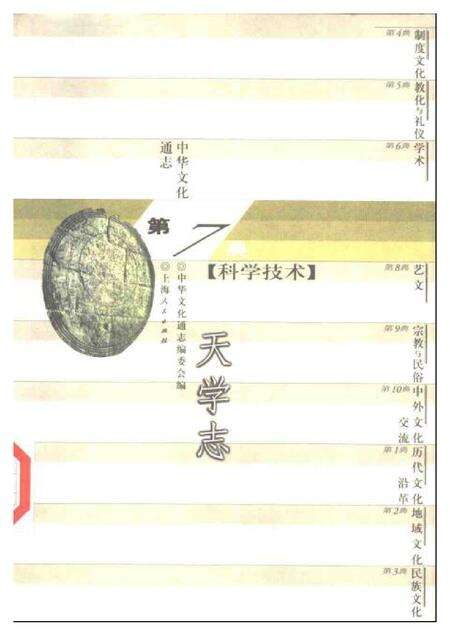 第4典
制度文化
第5典
教化与礼仪
第6典
学术
中华文化
通志
第7
【科学技术】
◎中华文化通志编委会编
◎上海人民出版社
天学志
第8典
艺文
第9典
宗教与民俗
第10典
中外文化
交流
第1典
历代文化
沿革
第2典
地域文化
第3典
民族文化